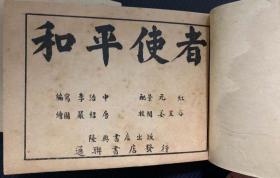 和平使者
編寫 李治中 配景 元紅
繪圖 嚴紹唐 校閱 姜立谷
隆興書店出版
通聯書店發行